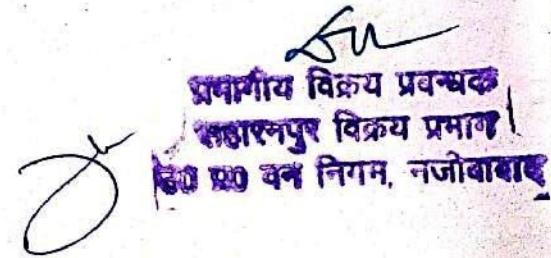 प्रभागीय विक्रय प्रबन्धक
सहारनपुर विक्रय प्रभाग
उ0 प्र0 वन निगम, नजीबाबाद